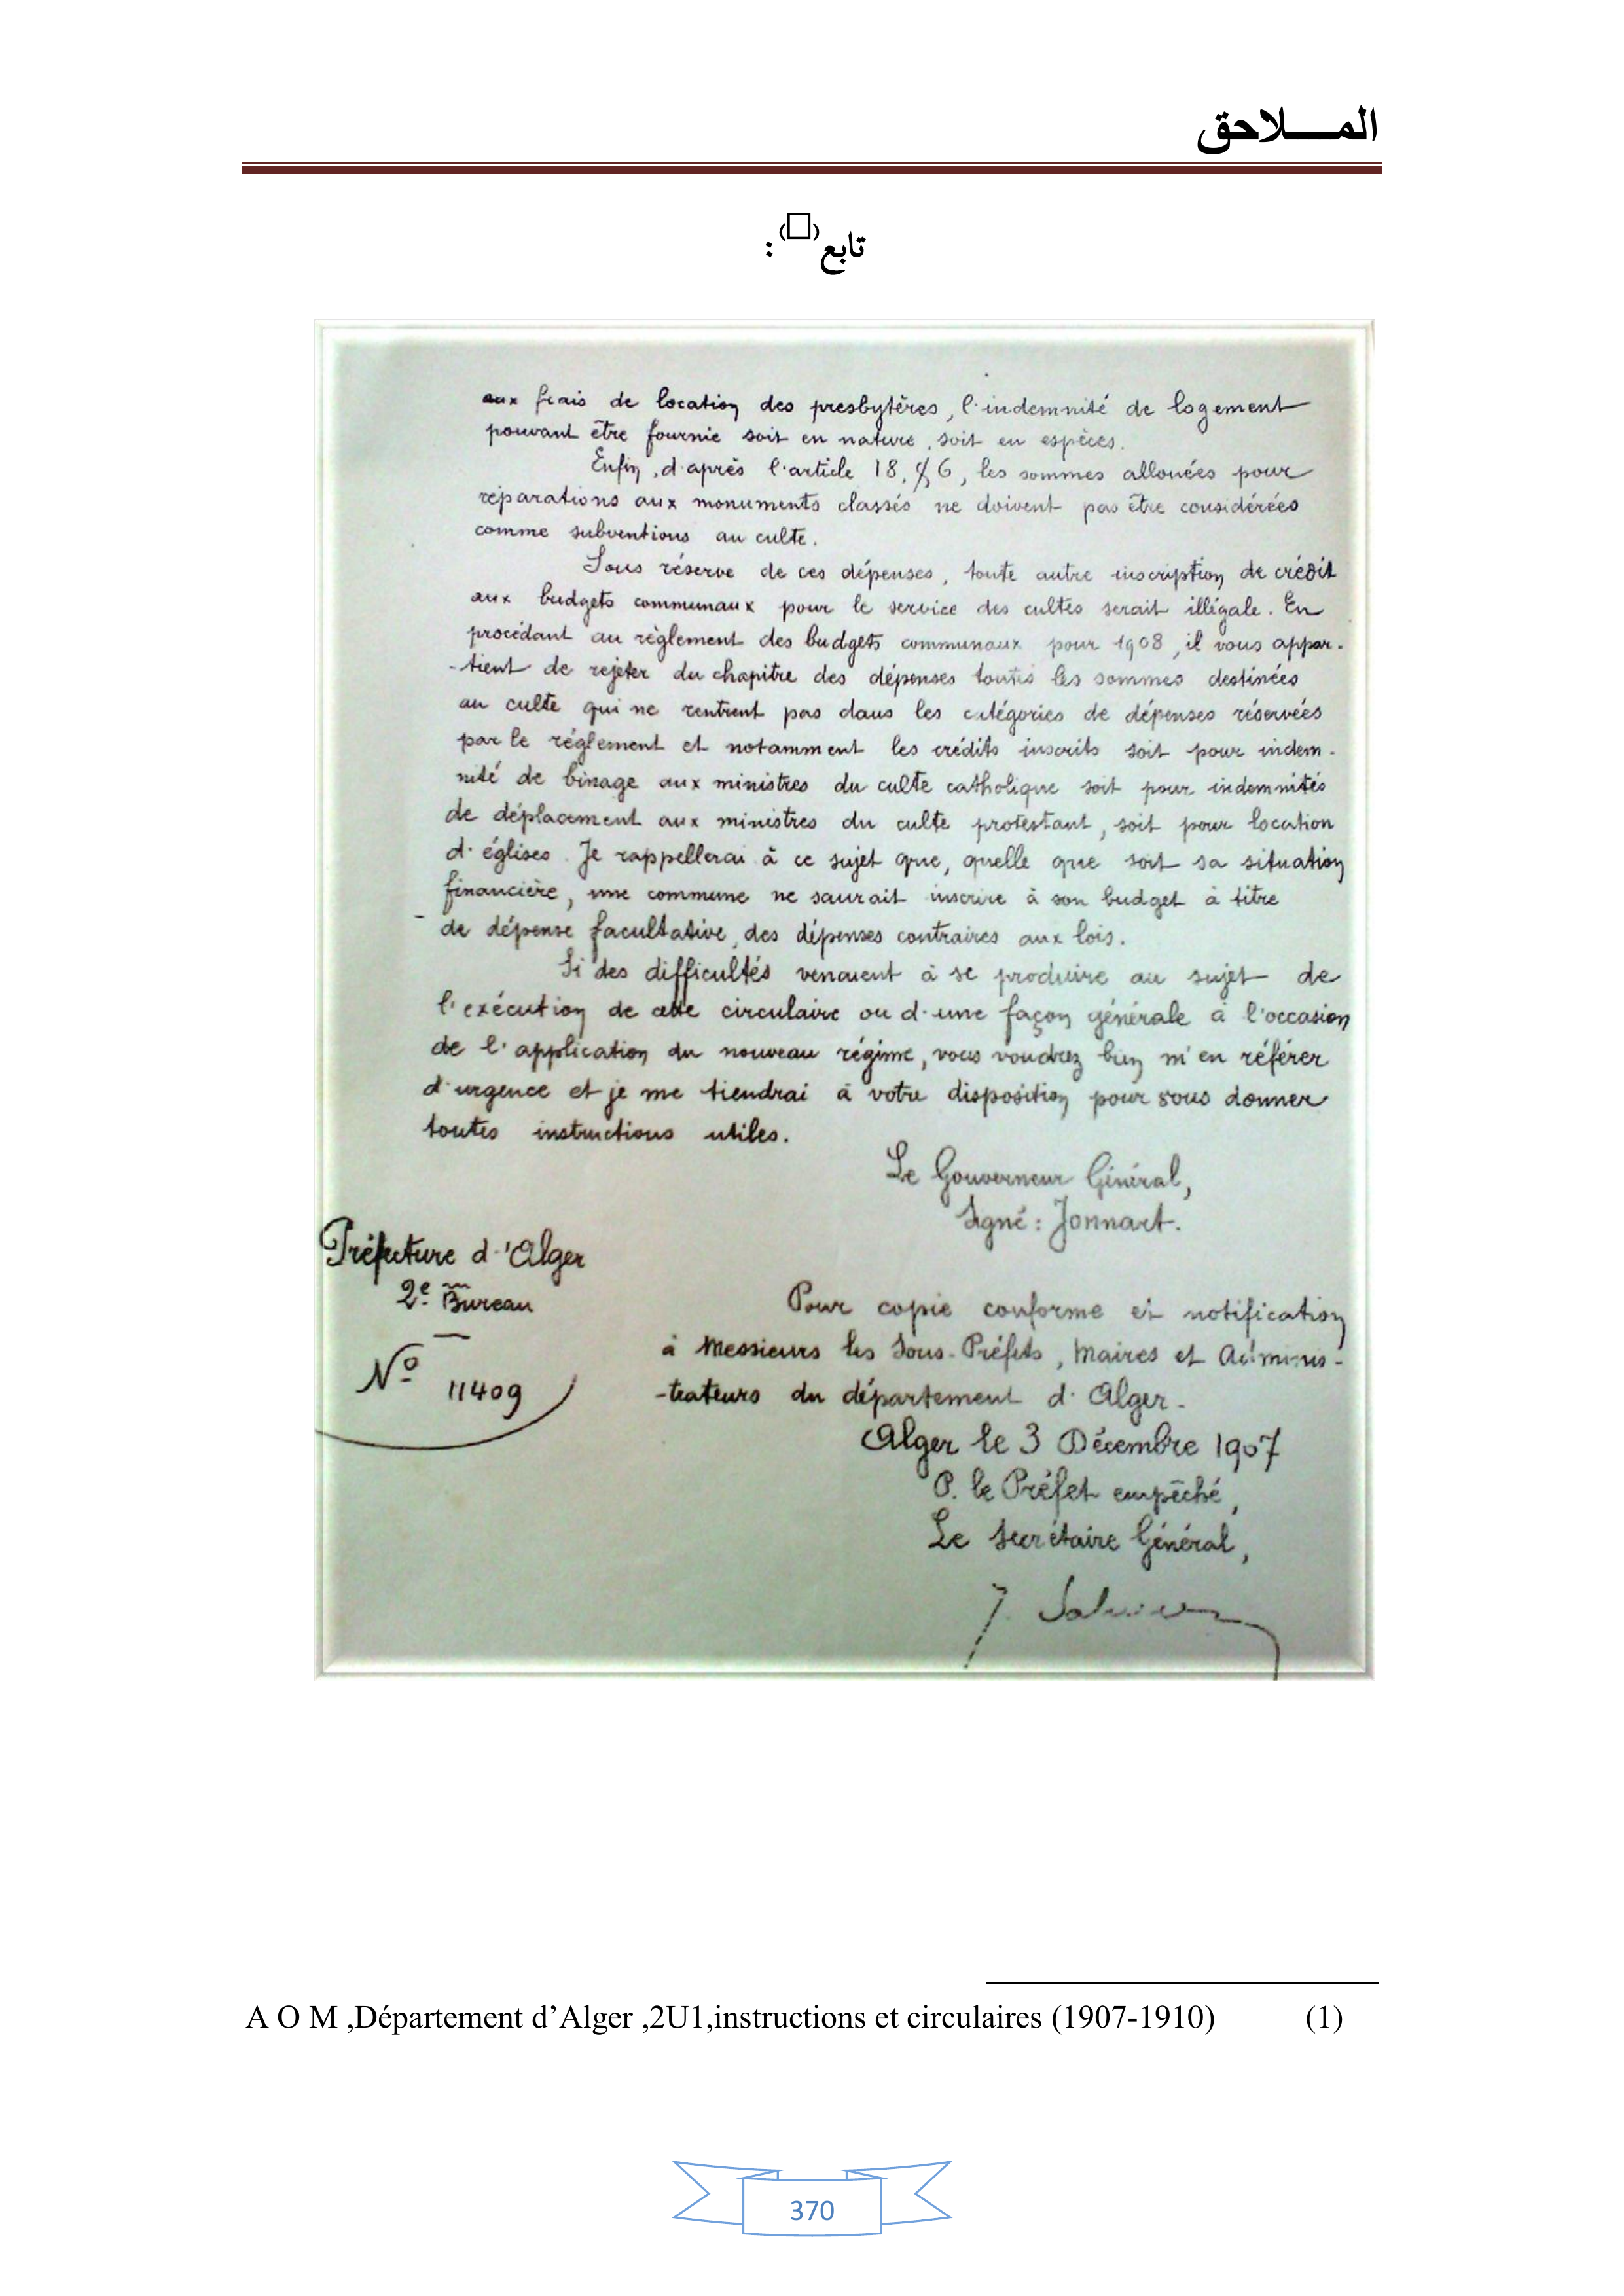 المـــــلاحق
تابع(□) :
aux frais de location des presbytères, l'indemnité de logement
pouvant être fournie soit en nature, soit en espèces.
Enfin, d'après l'article 18, § 6, les sommes allouées pour
réparations aux monuments classés ne doivent pas être considérées
comme subventions au culte.
Sous réserve de ces dépenses, toute autre inscription de crédit
aux budgets communaux pour le service des cultes serait illégale. En
procédant au règlement des budgets communaux pour 1908, il vous appar-
-tient de rejeter du chapitre des dépenses toutes les sommes destinées
au culte qui ne rentrent pas dans les catégories de dépenses réservées
par le règlement et notamment les crédits inscrits soit pour indem-
nité de binage aux ministres du culte catholique soit pour indemnités
de déplacement aux ministres du culte protestant, soit pour location
d'églises. Je rappellerai à ce sujet que, quelle que soit sa situation
financière, une commune ne saurait inscrire à son budget à titre
de dépense facultative, des dépenses contraires aux lois.
Si des difficultés venaient à se produire au sujet de
l'exécution de cette circulaire ou d'une façon générale à l'occasion
de l'application du nouveau régime, vous voudrez bien m'en référer
d'urgence et je me tiendrai à votre disposition pour vous donner
toutes instructions utiles.
Le Gouverneur Général,
Signé : Jonnart.
Préfecture d'Alger
2e Bureau
No 11409
Pour copie conforme et notification
à Messieurs les Sous-Préfets, Maires et Adminis-
-trateurs du département d'Alger.
Alger le 3 Décembre 1907
P. le Préfet empêché,
Le Secrétaire Général,
A O M ,Département d’Alger ,2U1,instructions et circulaires (1907-1910) (1)
370